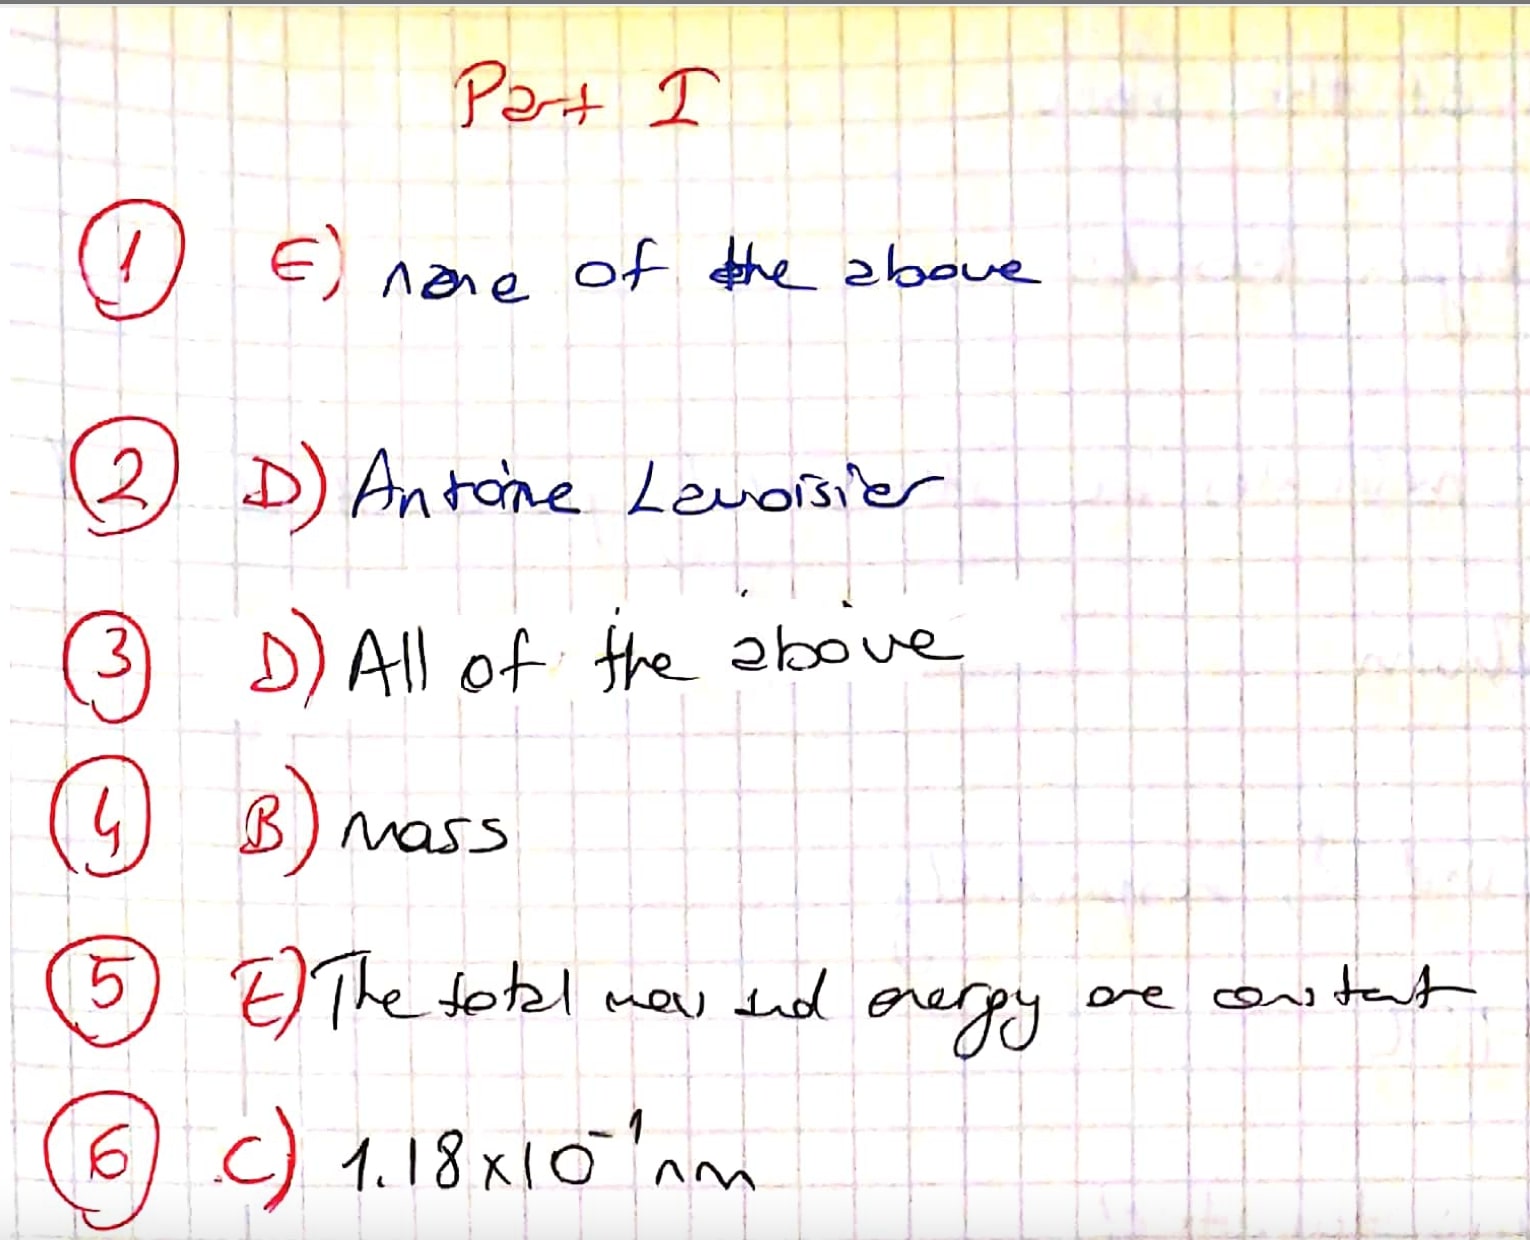 Part I
1 E) none of the above
2 D) Antoine Lavoisier
3 D) All of the above
4 B) Mass
5 E) The total mass and energy are constant
6 C) 1.18x10⁻¹ nm